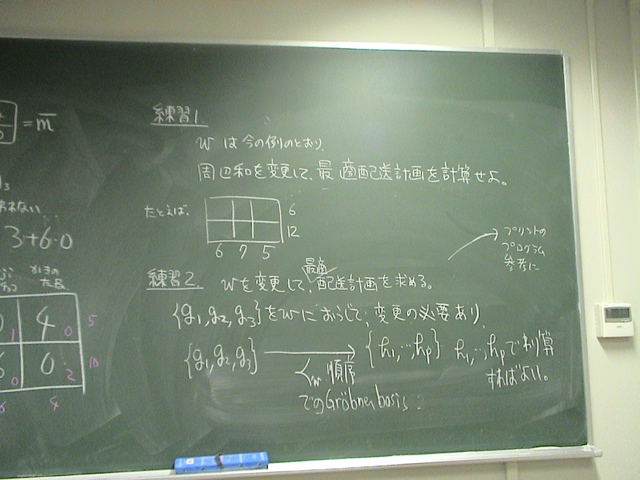 = m̄
3+6·0
4 0 5
0 2 10
4
練習1.
w は今の例のとおり,
周辺和を変更して、最適配送計画を計算せよ。
たとえば、
6
12
6 7 5
プリントの
プログラム
参考に
練習2.
wを変更して、最適配送計画を求める。
{g₁,g₂,g₃}をwにおうじて、変更の必要あり
{g₁,g₂,g₃} → {h₁,…,hp} h₁,…,hpでわり算
すればよい。
<w 順序
でのGröbner basis